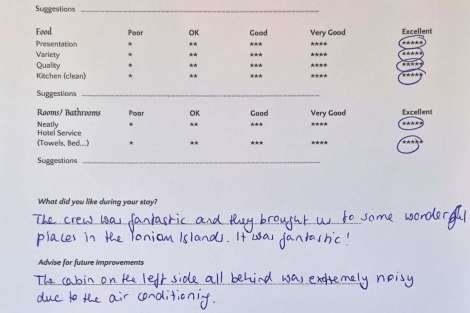 Suggestions
Food Poor OK Good Very Good Excellent
Presentation * ** *** **** *****
Variety * ** *** **** *****
Quality * ** *** **** *****
Kitchen (clean) * ** *** **** *****
Suggestions
Rooms/ Bathrooms Poor OK Good Very Good Excellent
Neatly * ** *** **** *****
Hotel Service
(Towels, Bed...) * ** *** **** *****
Suggestions
What did you like during your stay?
The crew was fantastic and they brought us to some wonderful
places in the Ionian Islands. It was fantastic!
Advise for future improvements
The cabin on the left side all behind was extremely noisy
due to the air conditioning.